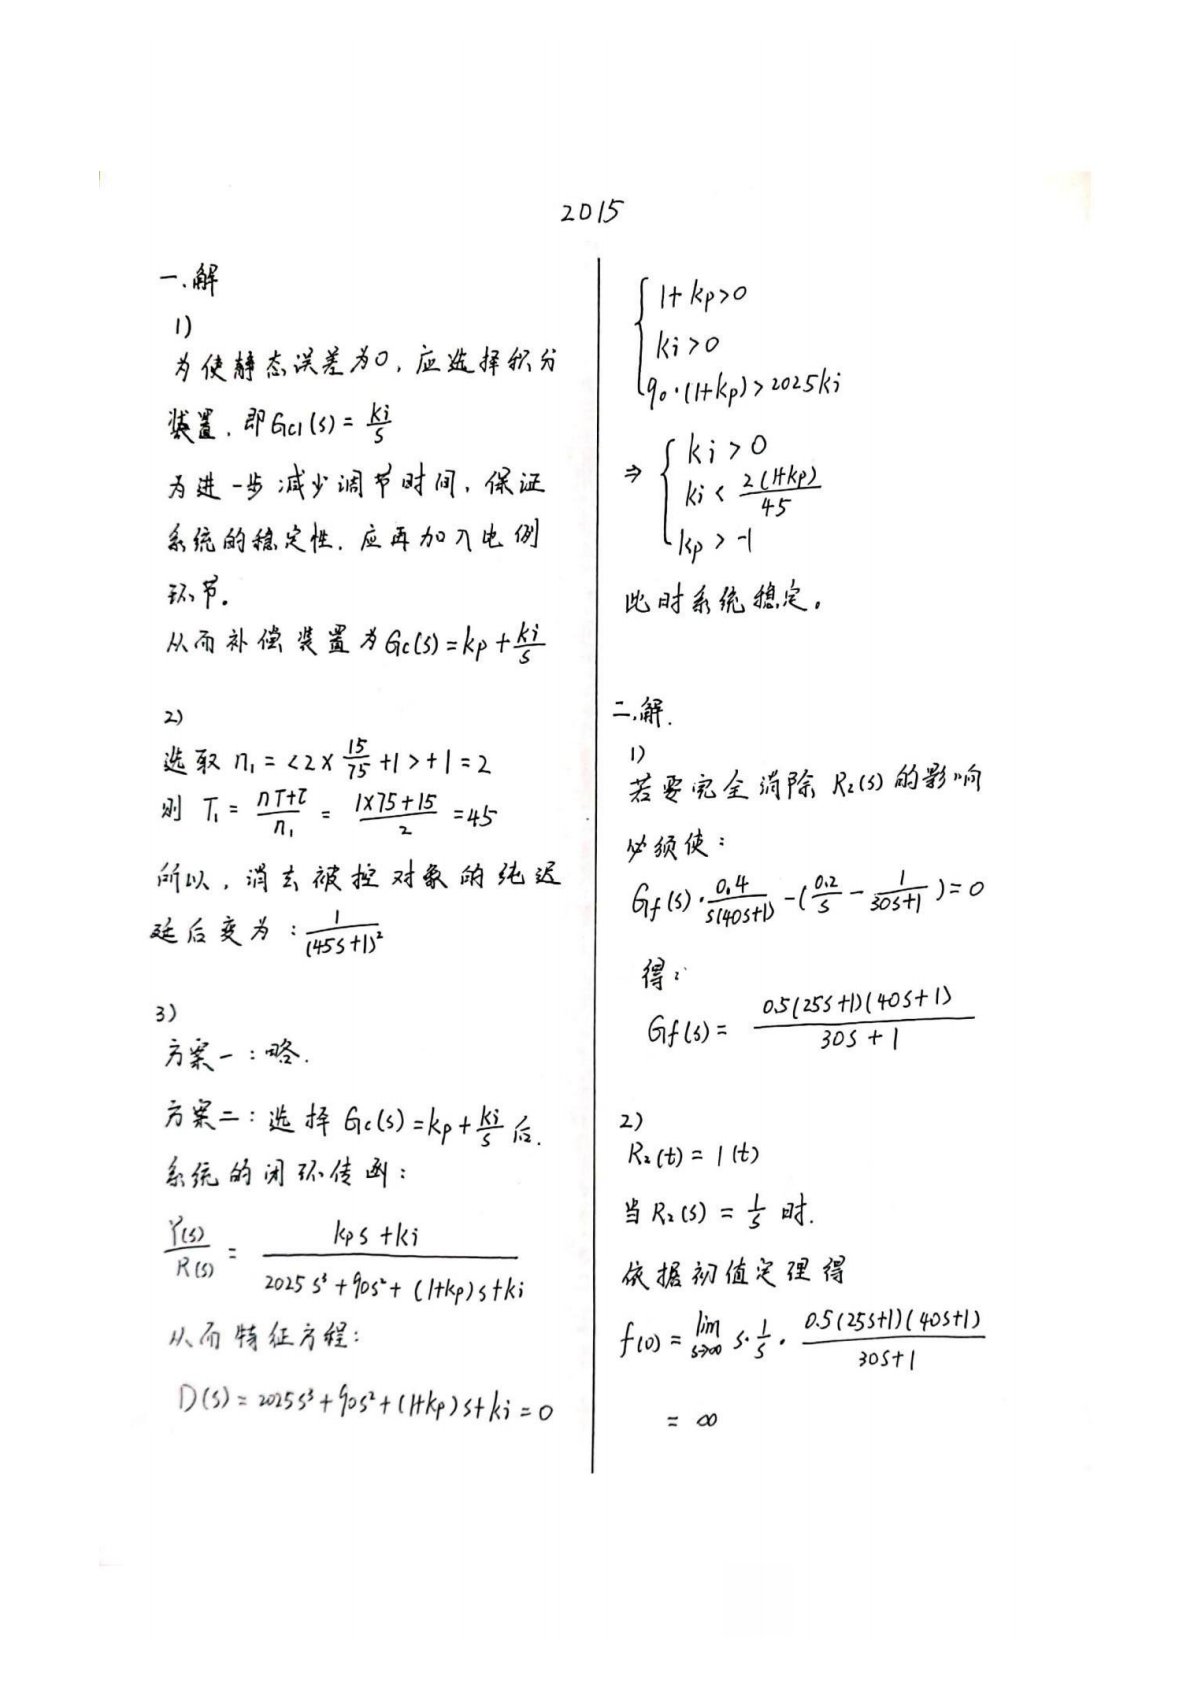 2015
一.解
1)
为使静态误差为0,应选择积分
装置,即Gc1(s)=ki/s
为进一步减少调节时间,保证
系统的稳定性.应再加入比例
环节。
从而补偿装置为Gc(s)=kp+ki/s
2)
选取 n₁=<2×15/75+1>+1=2
则 T₁=(nT+τ)/n₁=(1×75+15)/2=45
所以,消去被控对象的纯迟
延后变为:1/(45s+1)²
3)
方案一:略.
方案二:选择 Gc(s)=kp+ki/s 后.
系统的闭环传函:
Y(s)/R(s)=(kps+ki)/(2025s³+90s²+(1+kp)s+ki)
从而特征方程:
D(s)=2025s³+90s²+(1+kp)s+ki=0
{1+kp>0
ki>0
90·(1+kp)>2025ki
⇒{ki>0
ki<2(1+kp)/45
kp>-1
此时系统稳定。
二.解.
1)
若要完全消除R₂(s)的影响
必须使:
Gf(s)·0.4/(s(40s+1))-(0.2/s-1/(30s+1))=0
得:
Gf(s)=0.5(25s+1)(40s+1)/(30s+1)
2)
R₂(t)=1(t)
当R₂(s)=1/s 时.
依据初值定理得
f(0)=lim s→∞ s·1/s·0.5(25s+1)(40s+1)/(30s+1)
=∞